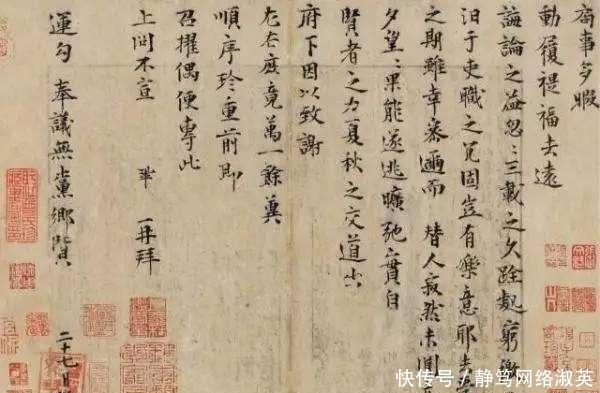 局事多暇
動履禔福去遠
誨論之益忽〻三載之久跧處窮
汩于吏職之冗固豈有樂意耶去
之期雖幸密邇而替人寂然未聞
夕望〻果能遂逃曠弛實自
賢者之力夏秋之交道出
府下因以致謝
左右庶竟萬一餘冀
順序珍重前即
召擢偶便專此
上問不宣 鞏 再拜
運勾奉議無黨鄉賢 二十七日
快传号/静笃网络淑英